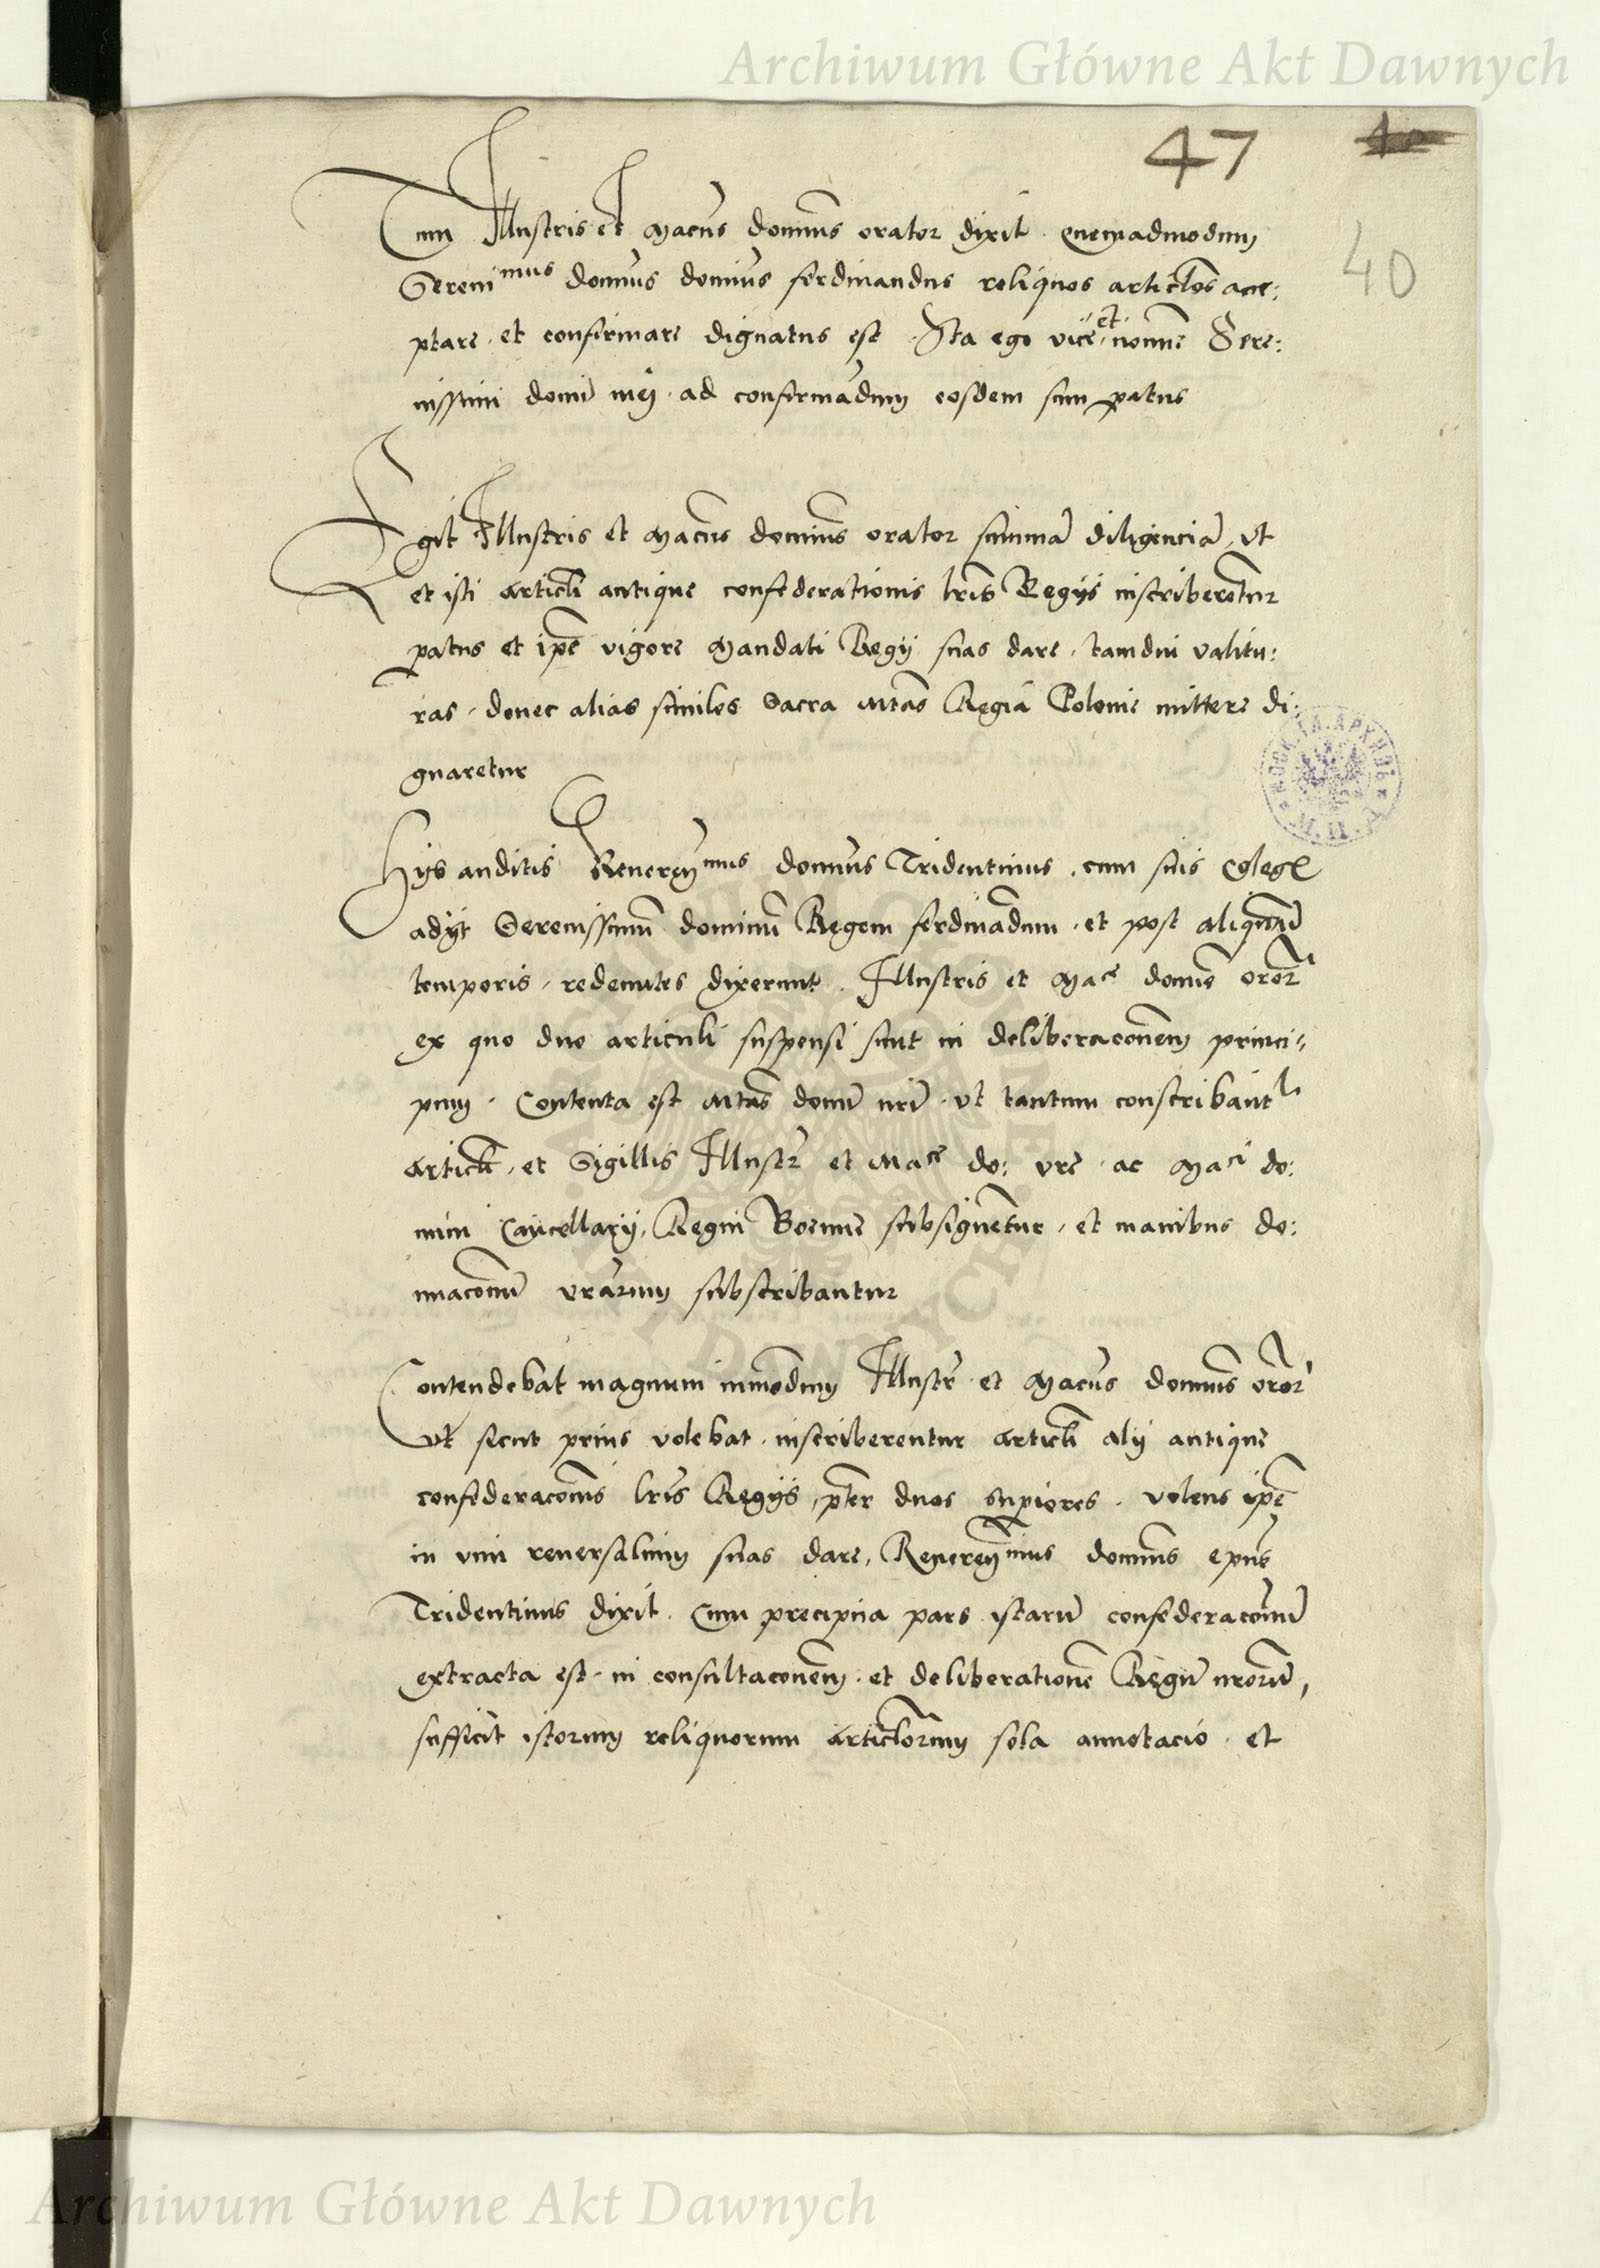 Archiwum Główne Akt Dawnych
47
40
Tum Illustris et Macus dominus orator dixit quemadmodum
Sereni mus dominus dominus ferdinandus reliquos articlos acce:
ptare et confirmare dignatus est Ita ego vice et nomine Sere:
nissimi domini mej ad confirmadum eosdem sum patus
Egit Illustris et Macus dominus orator summa diligencia, vt
et isti articli antique confederationis lris Regijs inscriberentur
patus et ipse vigore Mandati Regij suas dare, tamdiu valitu:
ras, donec alias similes Sacra Mtas Regia Polonie mittere di:
gnaretur
Hijs auditis Reueren mus dominus Tridentinus, cum suis
adijt Serenissimu dominu Regem ferdinadum, et post aliquantu
temporis, redeuntes dixerunt. Illustris et Mace domine orator
ex quo duo articuli suspensi sunt in deliberaconem princi=
pum, Contenta est Mtas domini nri, vt tantum conscribantur
articli, et Sigillis Illustr et Mace do: vre, ac Maci do:
mini Cancellarij, Regni Boemie subsignentur, et manibus do:
minaconum vrarum subscribantur
Contendebat magnum inmodum Illustr et Macus dominus orator
vt sicut prius volebat, inscriberentur articli alij antique
confederaconis lris Regijs, pter duos supiores, volens ipse
in vim reuersalium suas dare, Reueren mus dominus epus
Tridentinus dixit. Cum precipua pars istaru confederaconum
extracta est, in consultaconem, et deliberatione Regum nrorum,
sufficit istorum reliquorum articlorum sola annotacio, et
Archiwum Główne Akt Dawnych